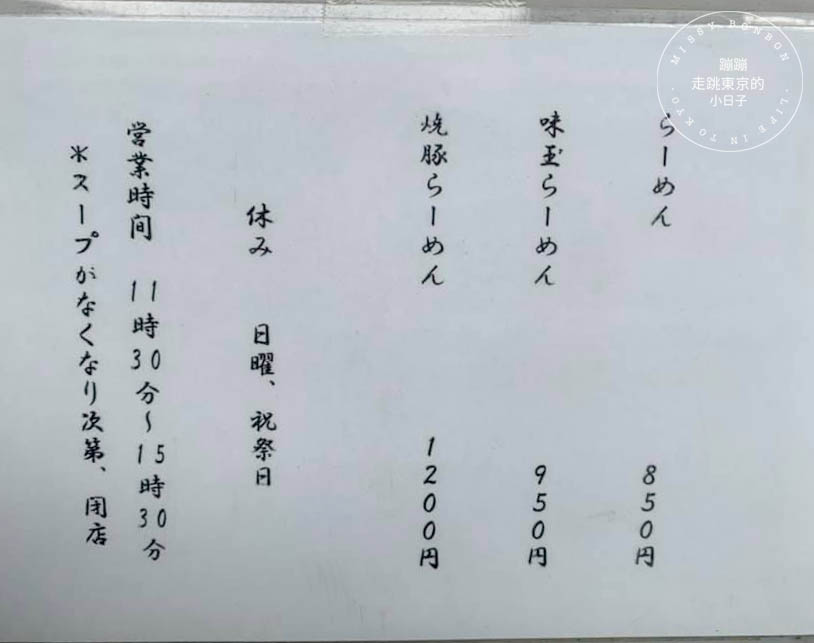 らーめん 850円
味玉らーめん 950円
焼豚らーめん 1200円
休み 日曜、祝祭日
営業時間 11時30分～15時30分
＊スープがなくなり次第、閉店
MISSY BONBON · LIFE IN TOKYO ·
蹦蹦
走跳東京的
小日子